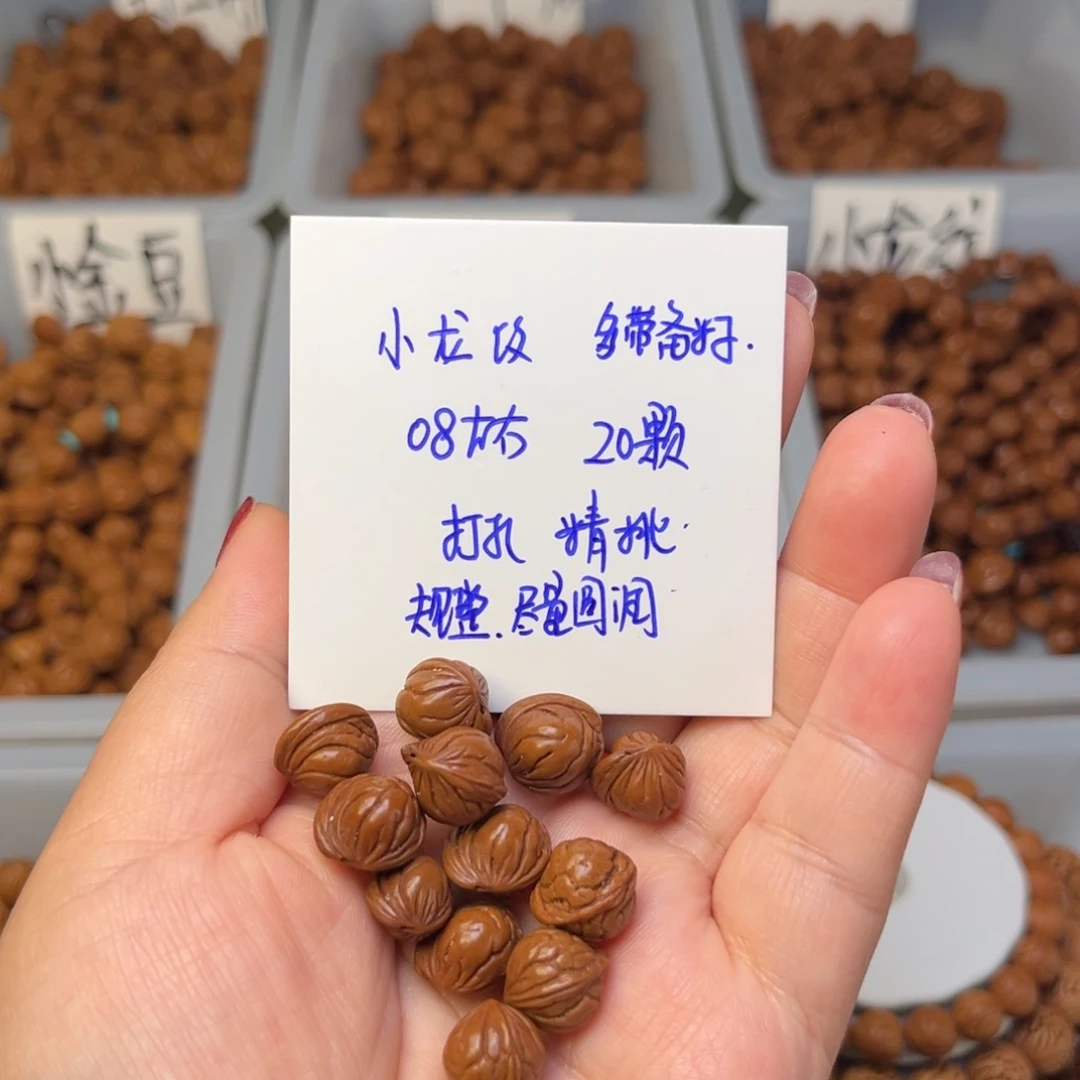 小金豆
小龙纹
小龙纹 多带备籽.
08左右 20颗
打孔 精挑.
规整. 尽量圆润